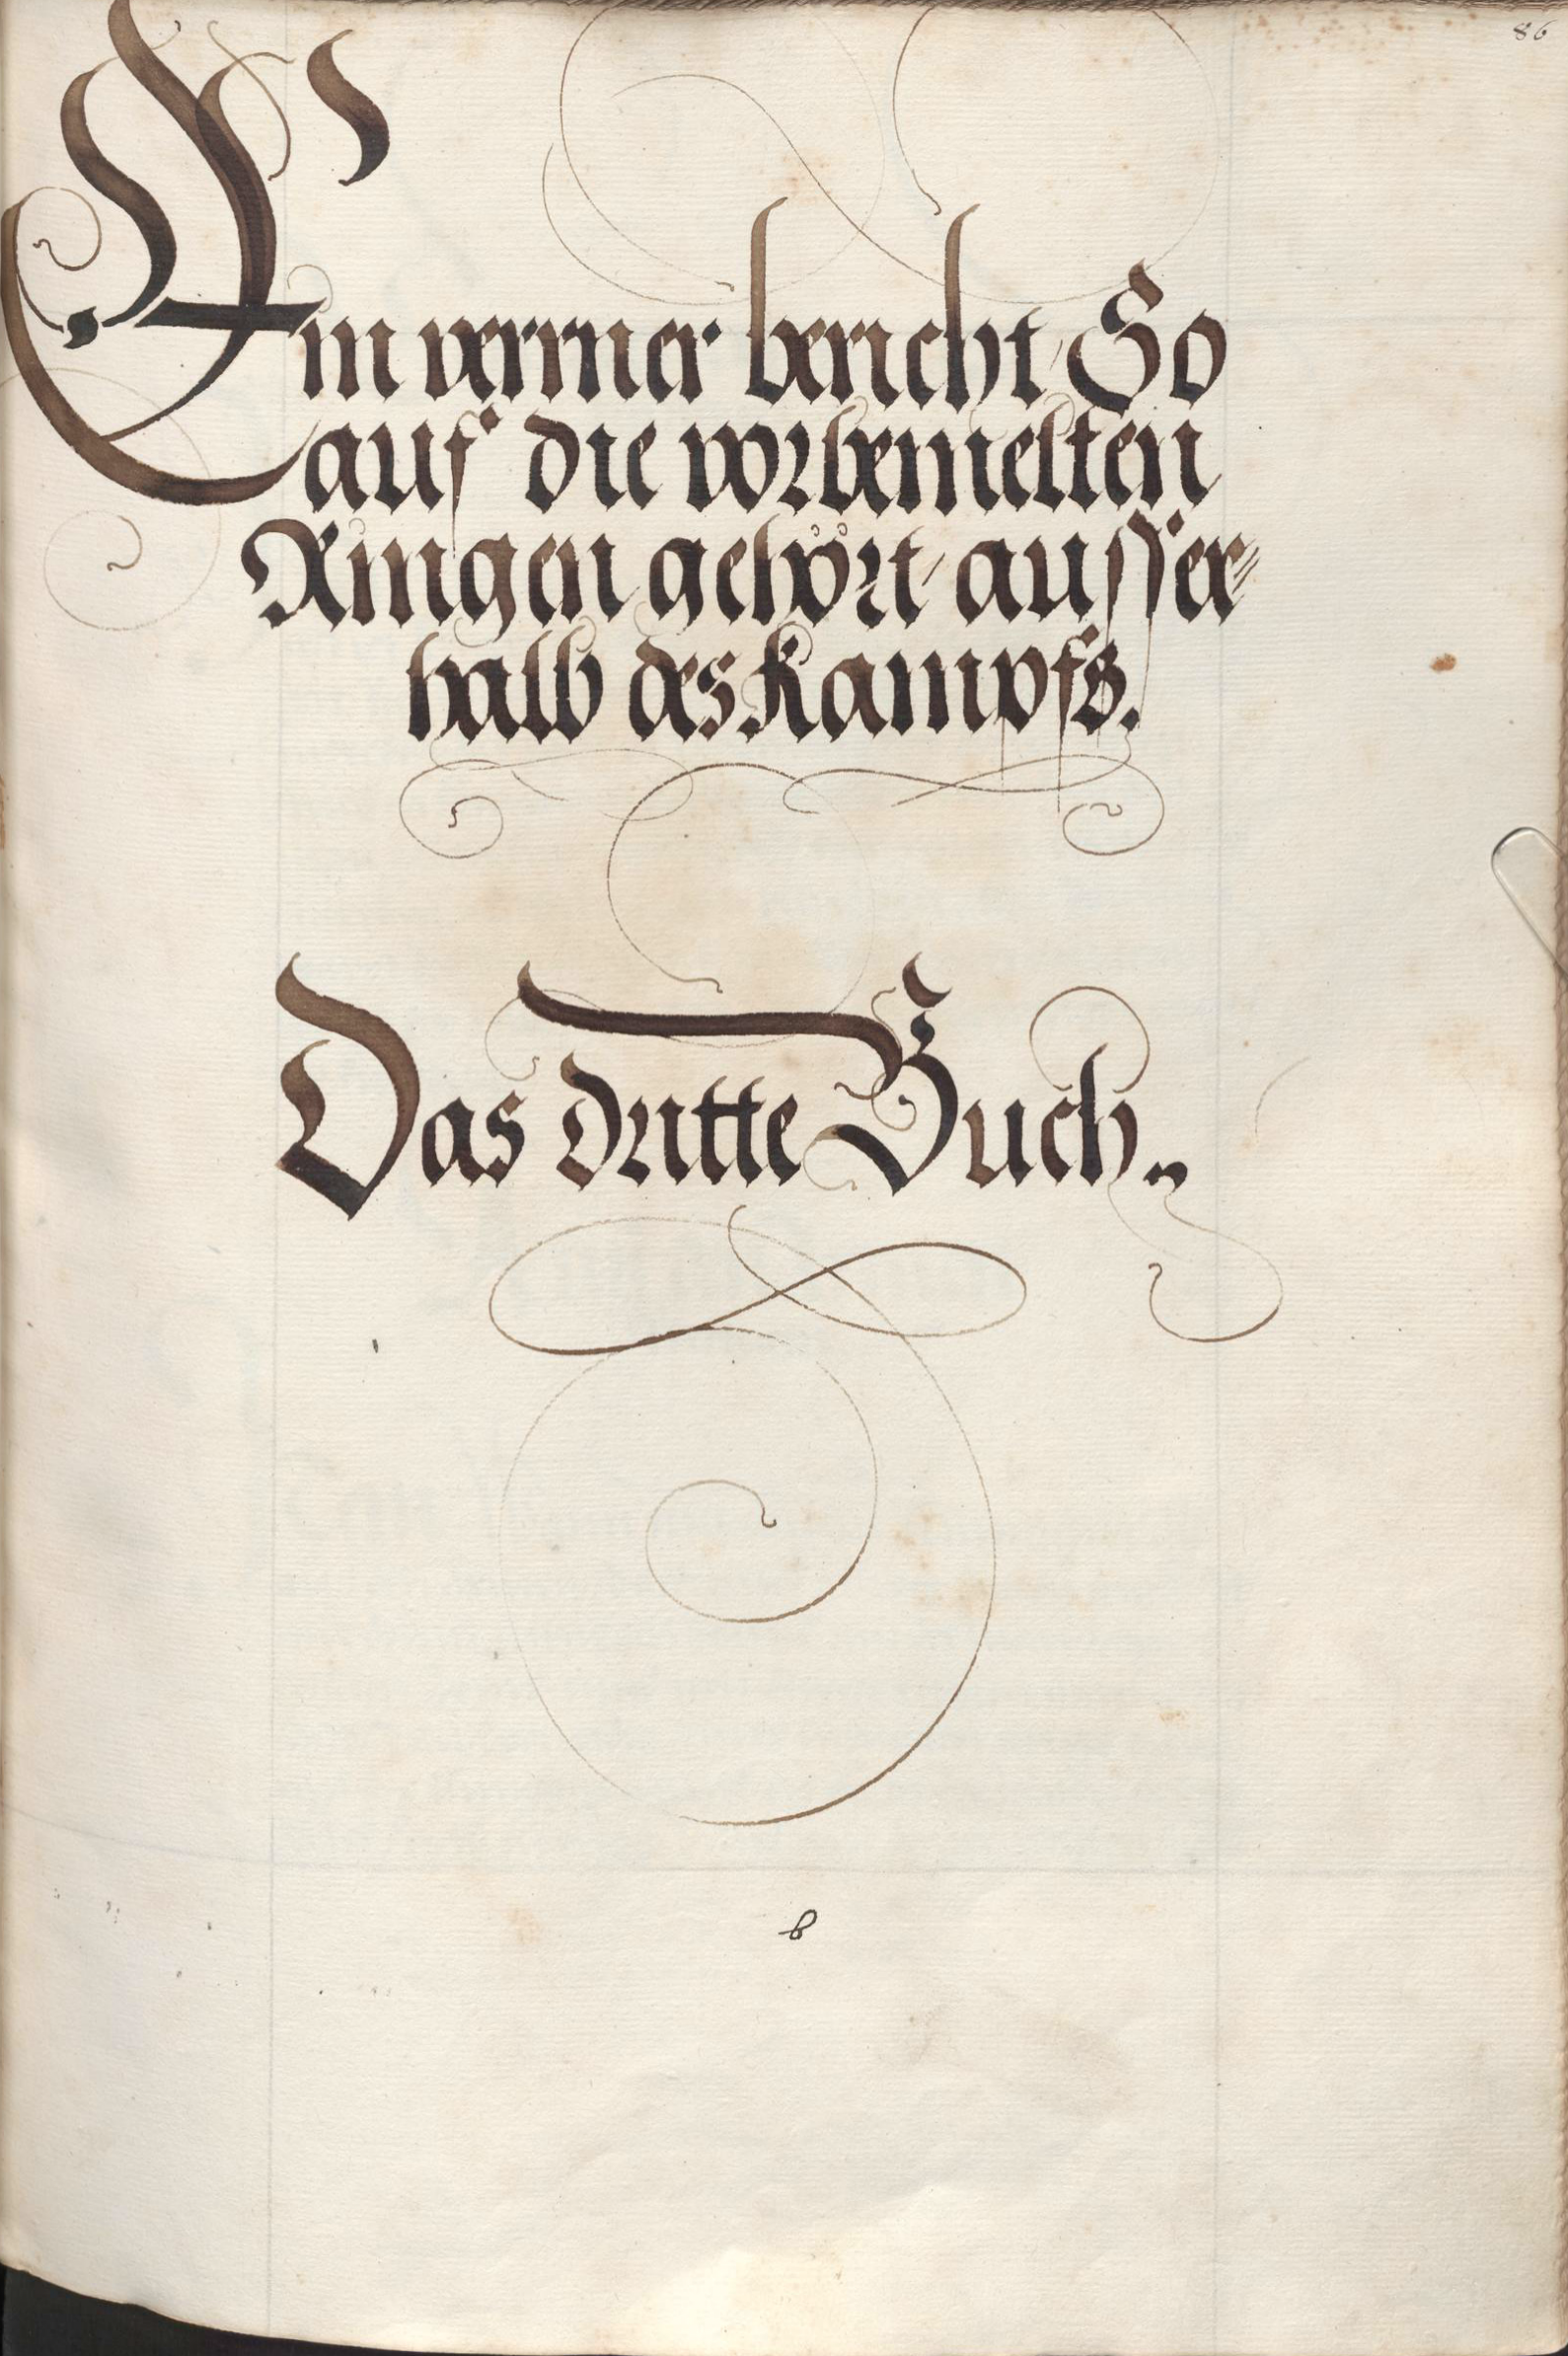 86
Ein verrner bericht, So
auf die vorbemelten
Ringen gehört, ausser=
halb des Kampfs.
Das dritte Buch